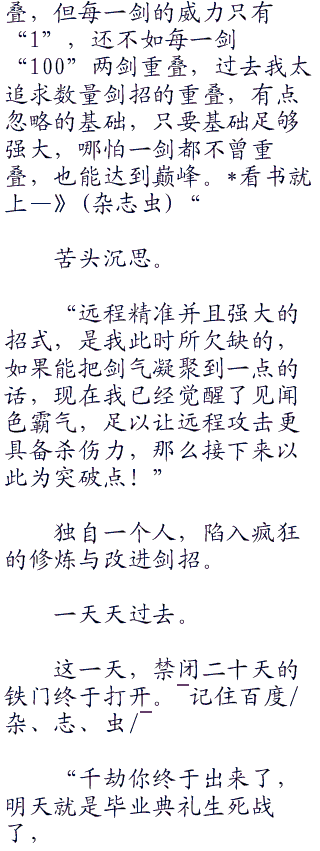 叠，但每一剑的威力只有
“1”，还不如每一剑
“100”两剑重叠，过去我太
追求数量剑招的重叠，有点
忽略的基础，只要基础足够
强大，哪怕一剑都不曾重
叠，也能达到巅峰。*看书就
上—》（杂志虫）“
苦头沉思。
“远程精准并且强大的
招式，是我此时所欠缺的，
如果能把剑气凝聚到一点的
话，现在我已经觉醒了见闻
色霸气，足以让远程攻击更
具备杀伤力，那么接下来以
此为突破点！”
独自一个人，陷入疯狂
的修炼与改进剑招。
一天天过去。
这一天，禁闭二十天的
铁门终于打开。¯记住百度/
杂、志、虫/¯
“千劫你终于出来了，
明天就是毕业典礼生死战
了，